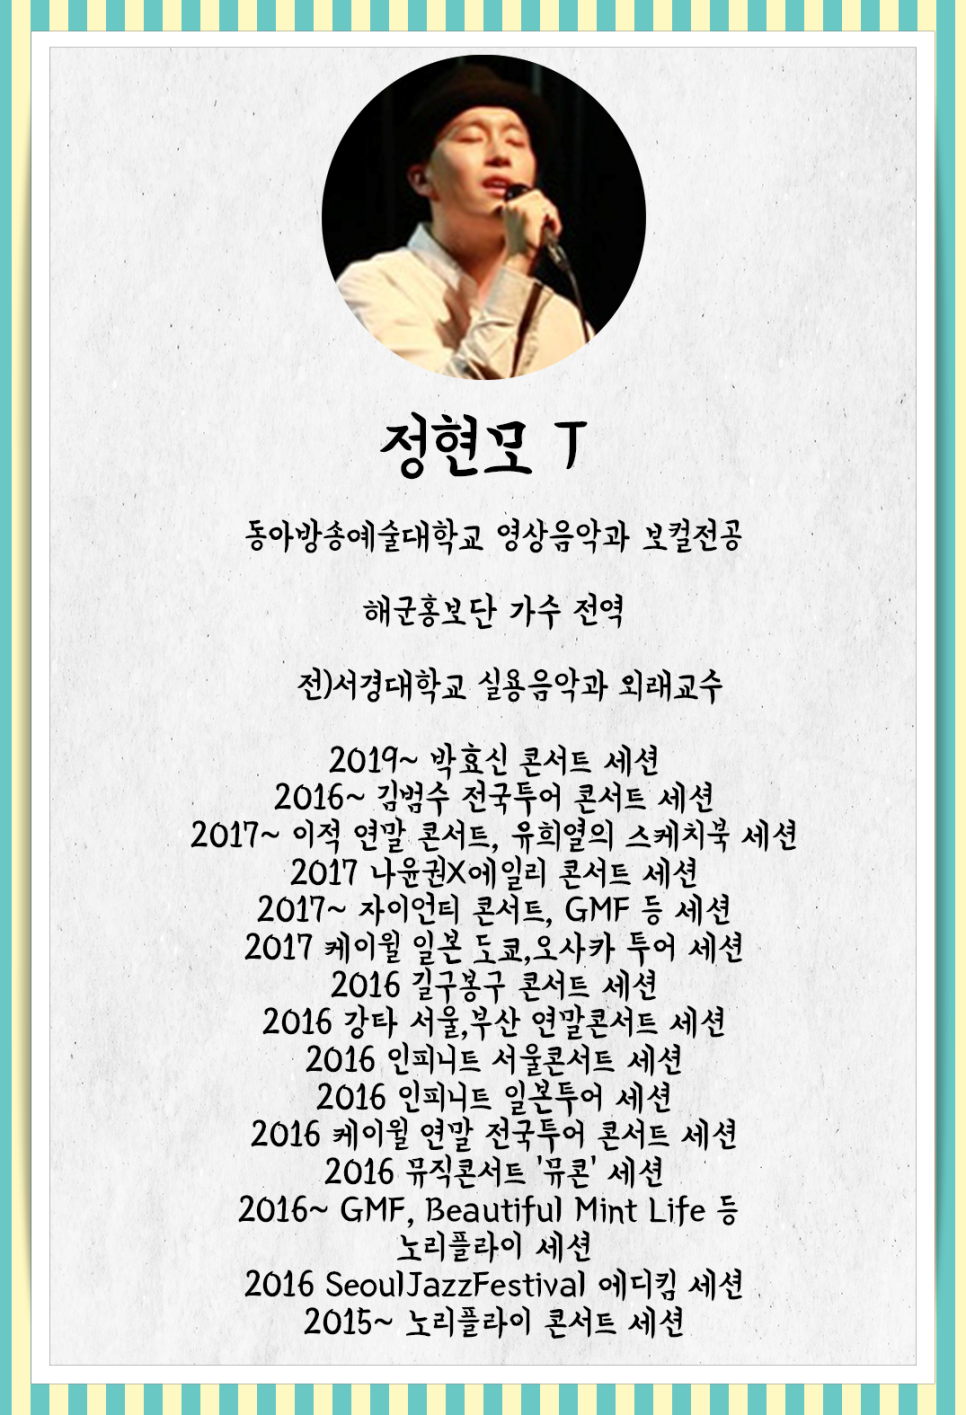 정현모 T
동아방송예술대학교 영상음악과 보컬전공
해군홍보단 가수 전역
전)서경대학교 실용음악과 외래교수
2019~ 박효신 콘서트 세션
2016~ 김범수 전국투어 콘서트 세션
2017~ 이적 연말 콘서트, 유희열의 스케치북 세션
2017 나윤권X에일리 콘서트 세션
2017~ 자이언티 콘서트, GMF 등 세션
2017 케이윌 일본 도쿄,오사카 투어 세션
2016 길구봉구 콘서트 세션
2016 강타 서울,부산 연말콘서트 세션
2016 인피니트 서울콘서트 세션
2016 인피니트 일본투어 세션
2016 케이윌 연말 전국투어 콘서트 세션
2016 뮤직콘서트 '뮤콘' 세션
2016~ GMF, Beautiful Mint Life 등
노리플라이 세션
2016 SeoulJazzFestival 에디킴 세션
2015~ 노리플라이 콘서트 세션